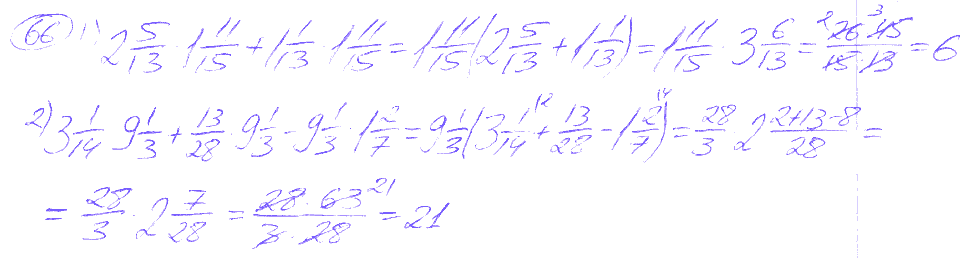 66 1) 2 5/13 · 1 11/15 + 1 1/13 · 1 11/15 = 1 11/15 (2 5/13 + 1 1/13) = 1 11/15 · 3 6/13 = 26·45/15·13 = 6
2) 3 1/14 · 9 1/3 + 13/28 · 9 1/3 - 9 1/3 · 1 2/7 = 9 1/3 (3 1/14 + 13/28 - 1 2/7) = 28/3 · 2 2+13-8/28 =
= 28/3 · 2 7/28 = 28·63/3·28 = 21